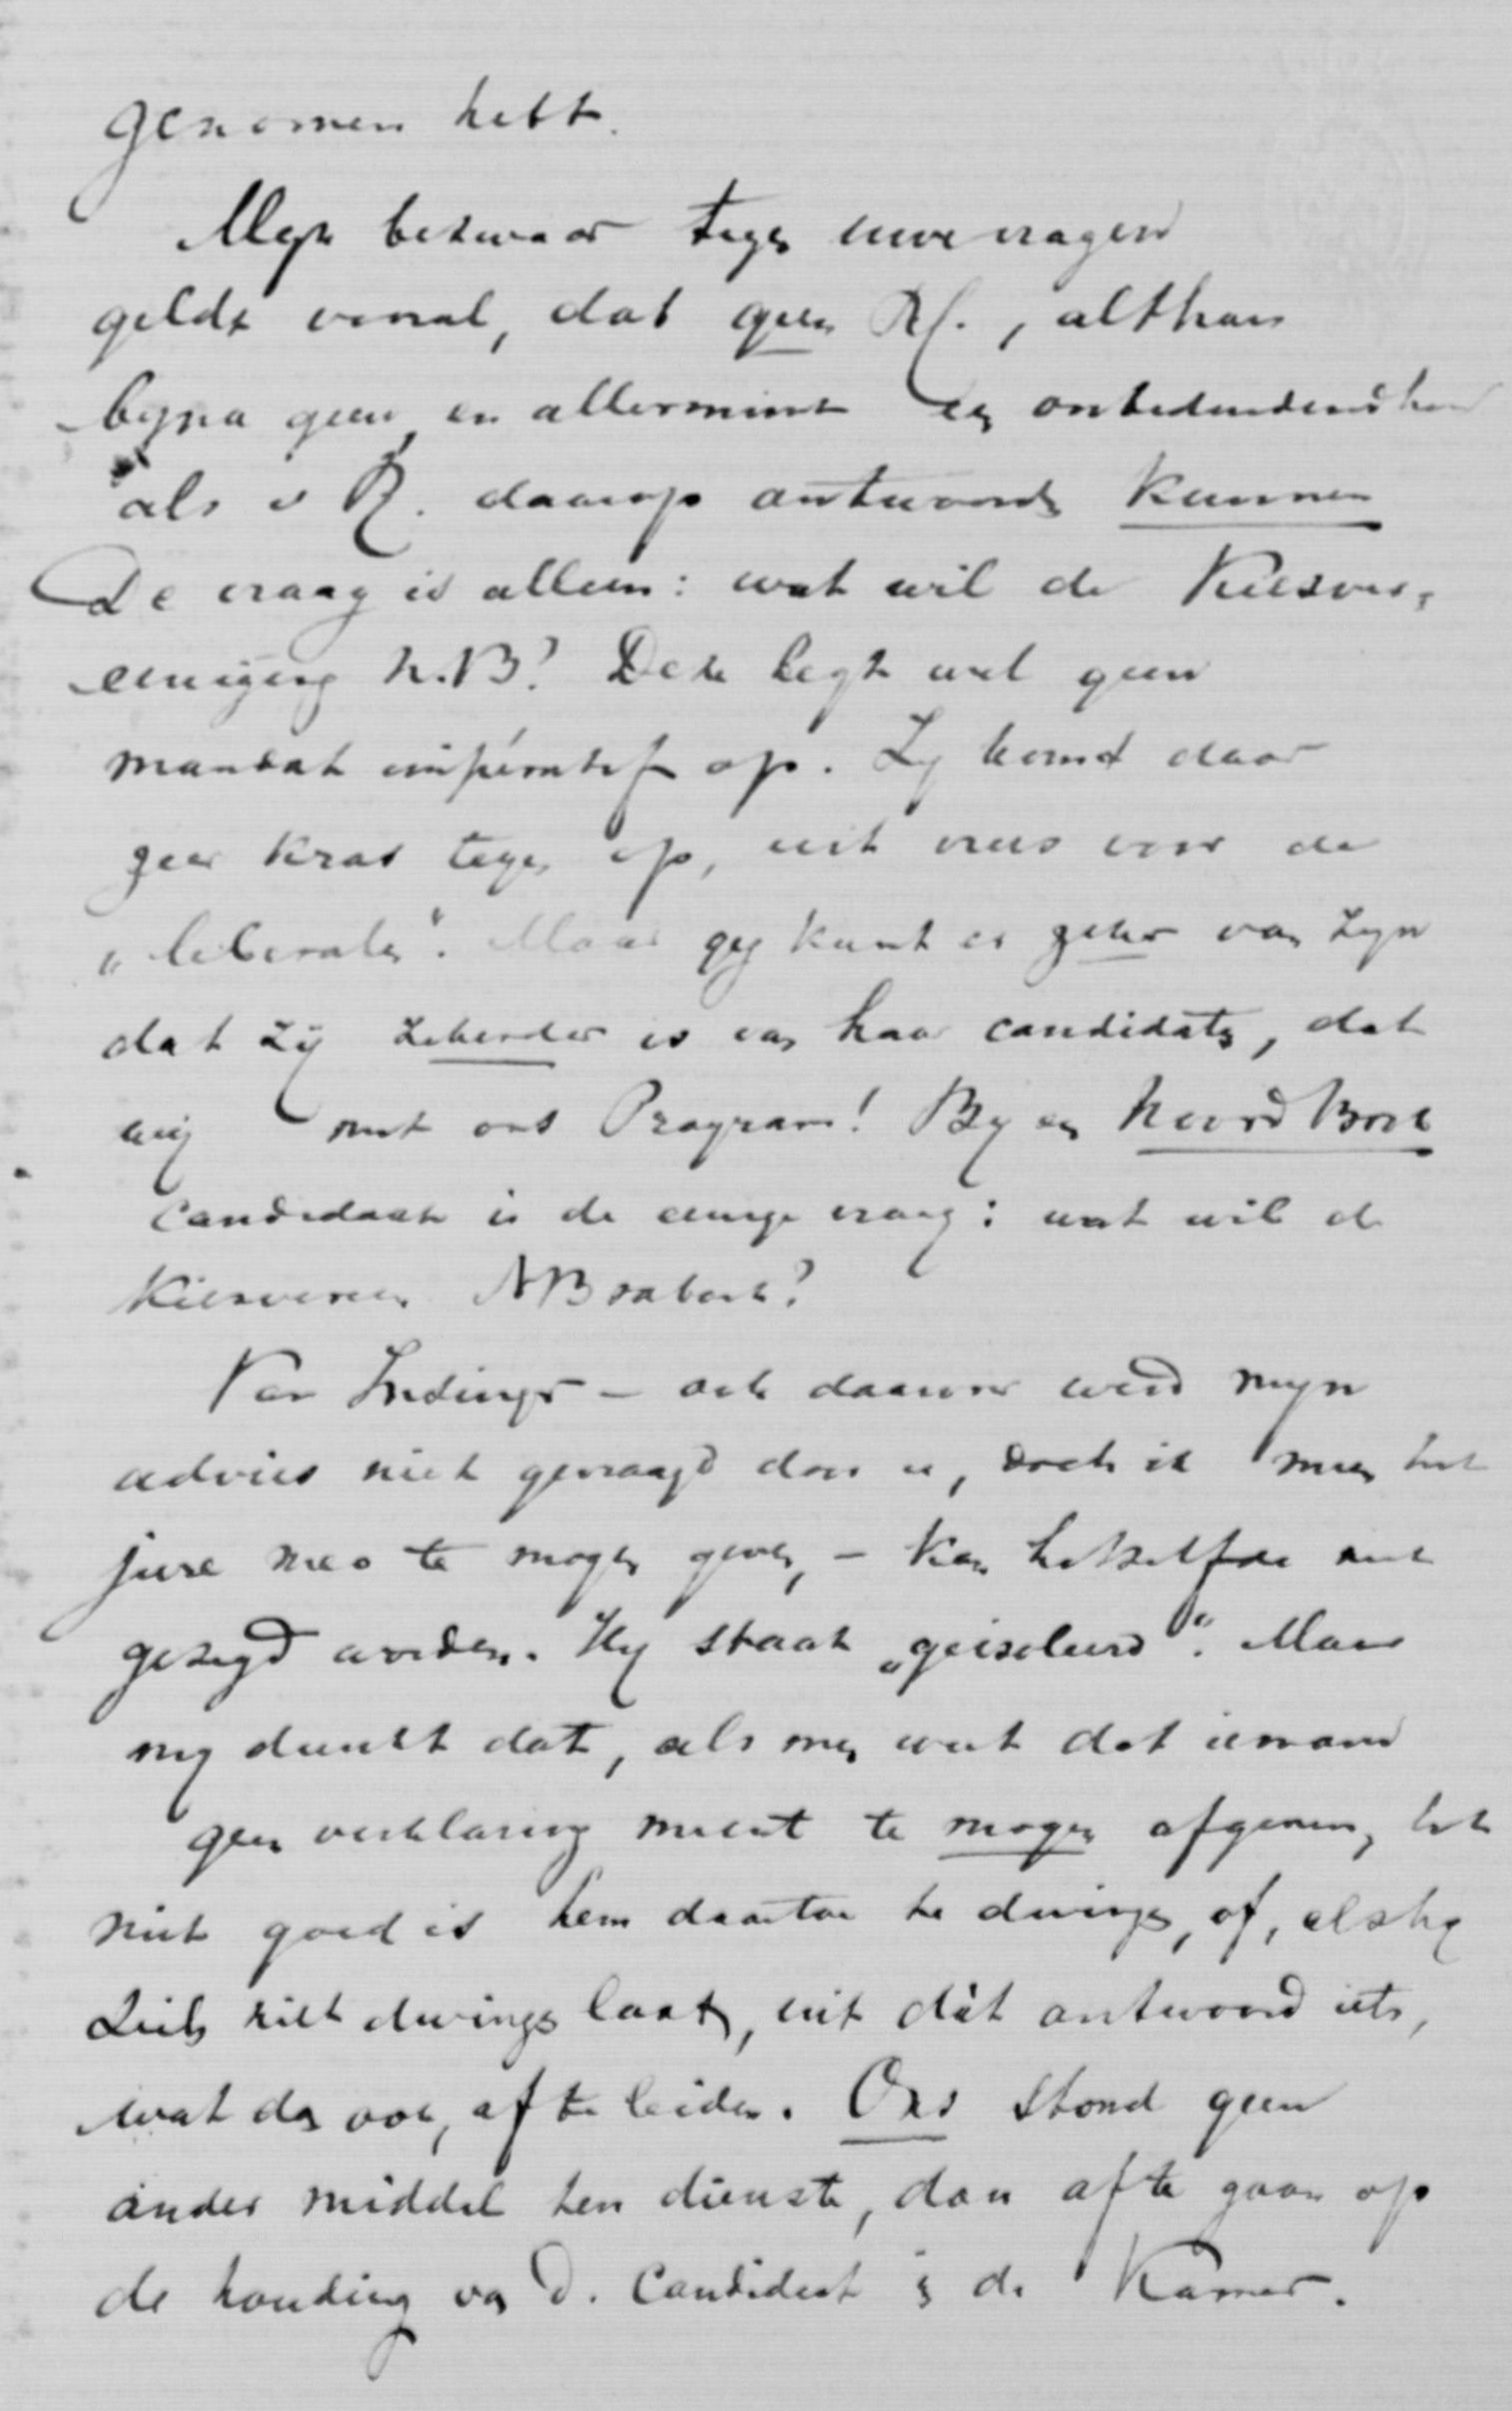 genomen hebt.
Mijn bezwaar tegen uwe vragen
geldt vooral, dat geen Rl., althans
bijna geen en allerminst een onbeduidend
als v R. daarop antwoorden kunnen
De vraag is alleen: wat wil de Kiesver-
eeniging N.B? Deze legt wel geen
mandat impératif op. Zij komt daar
zeer kras tegen op, uit vrees voor de
"liberalen". Maar gij kunt er zeker van zijn
dat zij zekerder is van haar candidaten, dat
wij met ons Program! Bij een Noord Brab
candidaat is de eenige vraag: wat wil de
Kiesvereen. NBrabant?
Van - ook daarvoor werd mijn
advies niet gevraagd door u, doch ik meen het
jure meo te mogen geven, - kan hetzelfde niet
gezegd worden. Hij staat "geisoleerd". Maar
mij dunkt dat, als men weet dat iemand
geen verklaring meent te mogen afgeven, het
niet goed is hem daartoe te dwingen, of, als hij
zich niet dwingen laat, uit dát antwoord iets,
wat dan ook, af te leiden. Ons stond geen
ander middel ten dienste, dan af te gaan op
de houding van d. Candidaat in de Kamer.